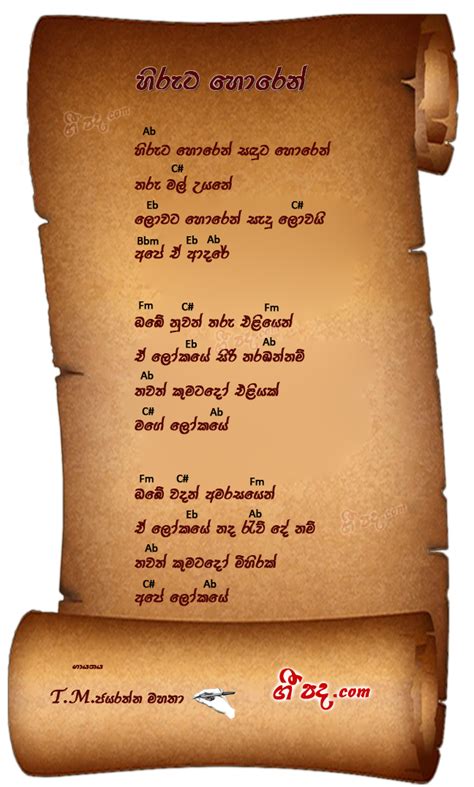 හිරුට හොරෙන්
ගී පද.com
Ab
හිරුට හොරෙන් සඳුට හොරෙන්
C#
තරු මල් උයනේ
Eb C#
ලොවට හොරෙන් සැදු ලොවයි
Bbm Eb Ab
අපේ ඒ ආදරේ
Fm C# Fm
ඔබේ නුවන් තරු එළියෙන්
Eb Ab
ඒ ලෝකයේ සිරි නරඹන්නම්
Ab
තවත් කුමටදෝ එළියක්
C# Ab
මගේ ලෝකයේ
Fm C# Fm
ඔබේ වදන් අමරසයෙන්
Eb Ab
ඒ ලෝකයේ නද රැව් දේ නම්
ගී පද.com
Ab
තවත් කුමටදෝ මිහිරක්
C# Ab
අපේ ලෝකයේ
ගායනය
T.M.ජයරත්න මහතා
ගී පද.com